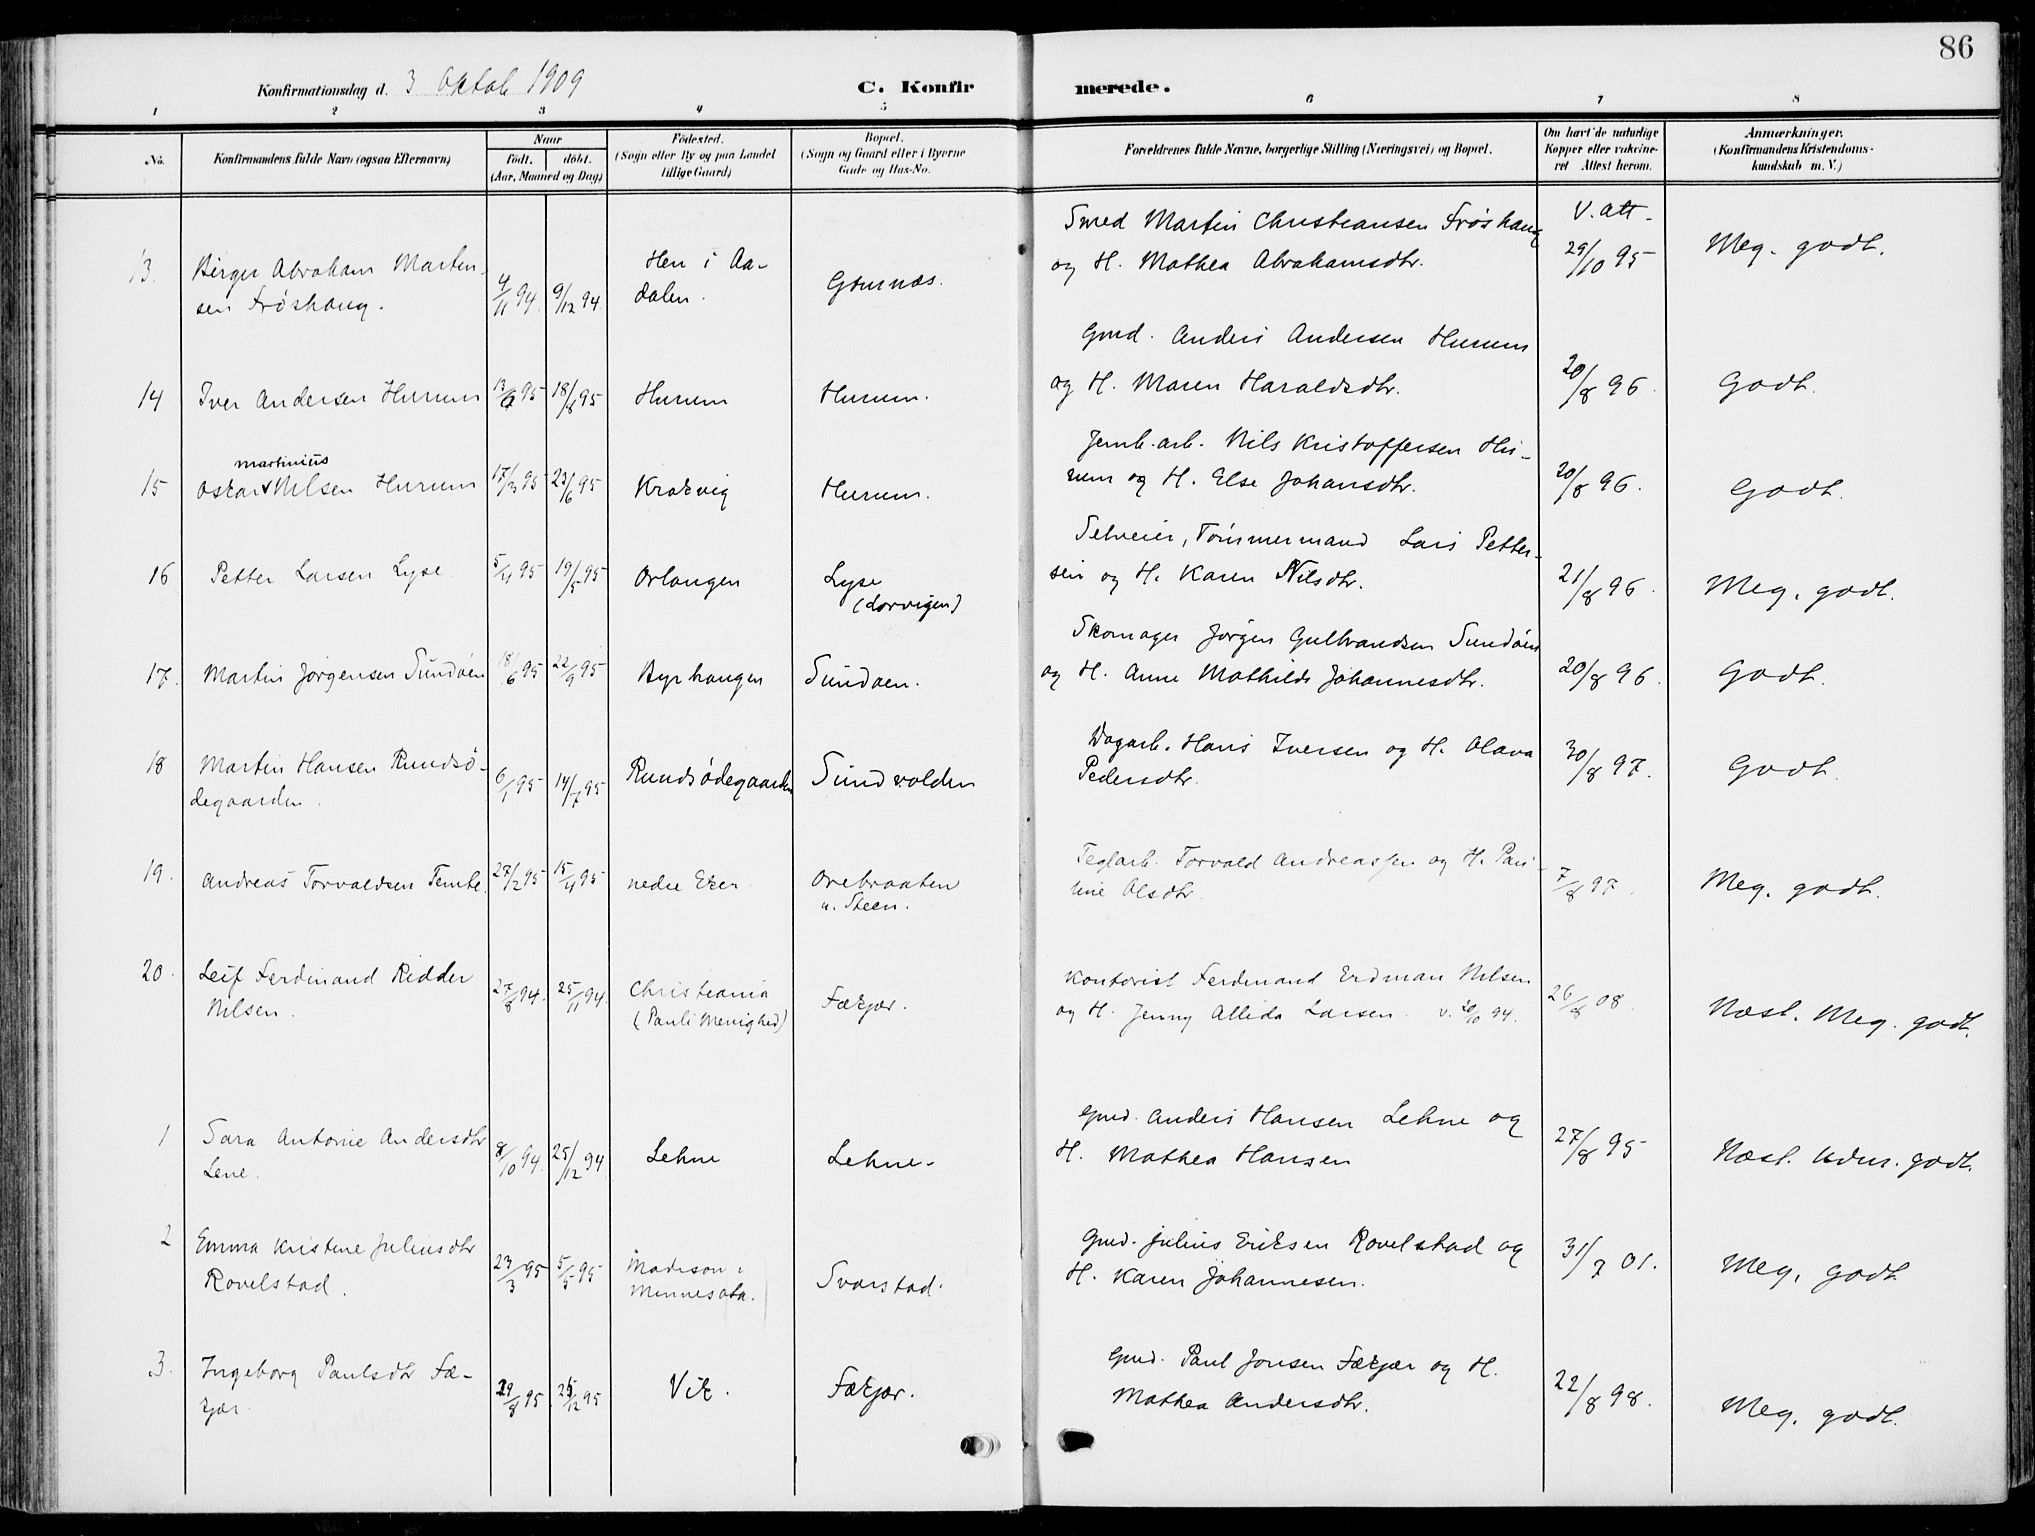 86
Konfirmationsdag d. 3 Oktob 1909
C. Konfirmerede.
1 2 3 4 5 6 7 8
No.
Konfirmandens fulde Navn (ogsaa Efternavn)
Naar
født. døbt.
(Aar, Maaned og Dag)
Fødested.
(Sogn eller By og paa Landet
tillige Gaard)
Bopæl.
(Sogn og Gaard eller i Byerne
Gade og Hus-No.
Forældrenes fulde Navne, borgerlige Stilling (Næringsvei) og Bopæl.
Om havt de naturlige
Kopper eller vakcine-
ret Attest herom.
Anmærkninger.
(Konfirmandens Kristendoms-
kundskab m. V.)
13. Birger Abraham Marten-
sen Frøshaug.
4/11 94 9/12 94
Hen i Aa-
dalen.
Gomnæs.
Smed Martin Christiansen Frøshaug
og H. Mathea Abrahamsdtr.
V. att.
29/10 95
Meg. godt.
14 Iver Andersen Hurum 13/6 95 18/8 95 Hurum Hurum.
Gmd. Anders Andersen Hurum
og H. Maren Haraldsdtr.
20/8 96. Godt.
martinius
15 Oskar v Nilsen Hurum 17/3 95 23/6 95 Krokvig Hurum.
Jernb. arb. Nils Kristoffersen Hu-
rum og H. Else Johansdtr.
20/8 96. Godt.
16 Petter Larsen Lyse 5/4 95 19/5 95 Orlangen Lyse
(Lorvigen)
Selveier, Tømmermand Lars Petter-
sen og H. Karen Nilsdtr.
21/8 96. Meg. godt.
17. Martin Jørgensen Sundøen 18/6 95 22/9 95 Byrhaugen Sundøen.
Skomager Jørgen Gulbrandsen Sundøen
og H. Anne Mathilde Johannesdtr.
20/8 96. Godt.
18 Martin Hansen Rundsø-
degaarden.
6/1 95 14/7 95 Rundsødegaarden Sundvolden
Dagarb. Hans Iversen og H. Olava
Pedersdtr.
30/8 97. Godt.
19. Andreas Torvaldsen Temte. 27/2 95 15/4 95 nedre Eker Orebraaten
u. Steen.
Teglarb. Torvald Andreassen og H. Pau-
line Olsdtr.
7/8 97. Meg. godt.
20. Leif Ferdinand Ridder
Nilsen.
27/8 94. 25/11 94.
Christiania
(Pauli Menighed)
Fækjær.
Kontorist Ferdinand Erdman Nilsen
og H. Jenny Allida Larsen. v. 20/10 94.
26/8 08. Næst. Meg. godt.
1 Sara Antonie Andersdtr
Lene.
8/10 94. 25/12 94. Lehne Lehne.
Gmd. Anders Hansen Lehne og
H. Mathea Hansen
27/8 95 Næst. Udm. godt.
2 Emma Kristine Juliusdtr
Rovelstad.
23/3 95 5/5 95
Madison i
Minnesota.
Svarstad.
Gmd. Julius Eriksen Rovelstad og
H. Karen Johannesen.
31/7 01. Meg. godt
3. Ingeborg Paulsdtr Fæ-
kjær.
29/8 95 25/12 95 Vik. Fækjær.
Gmd. Paul Jonsen Fækjær og H.
Mathea Andersdtr.
22/8 98. Meg. godt.